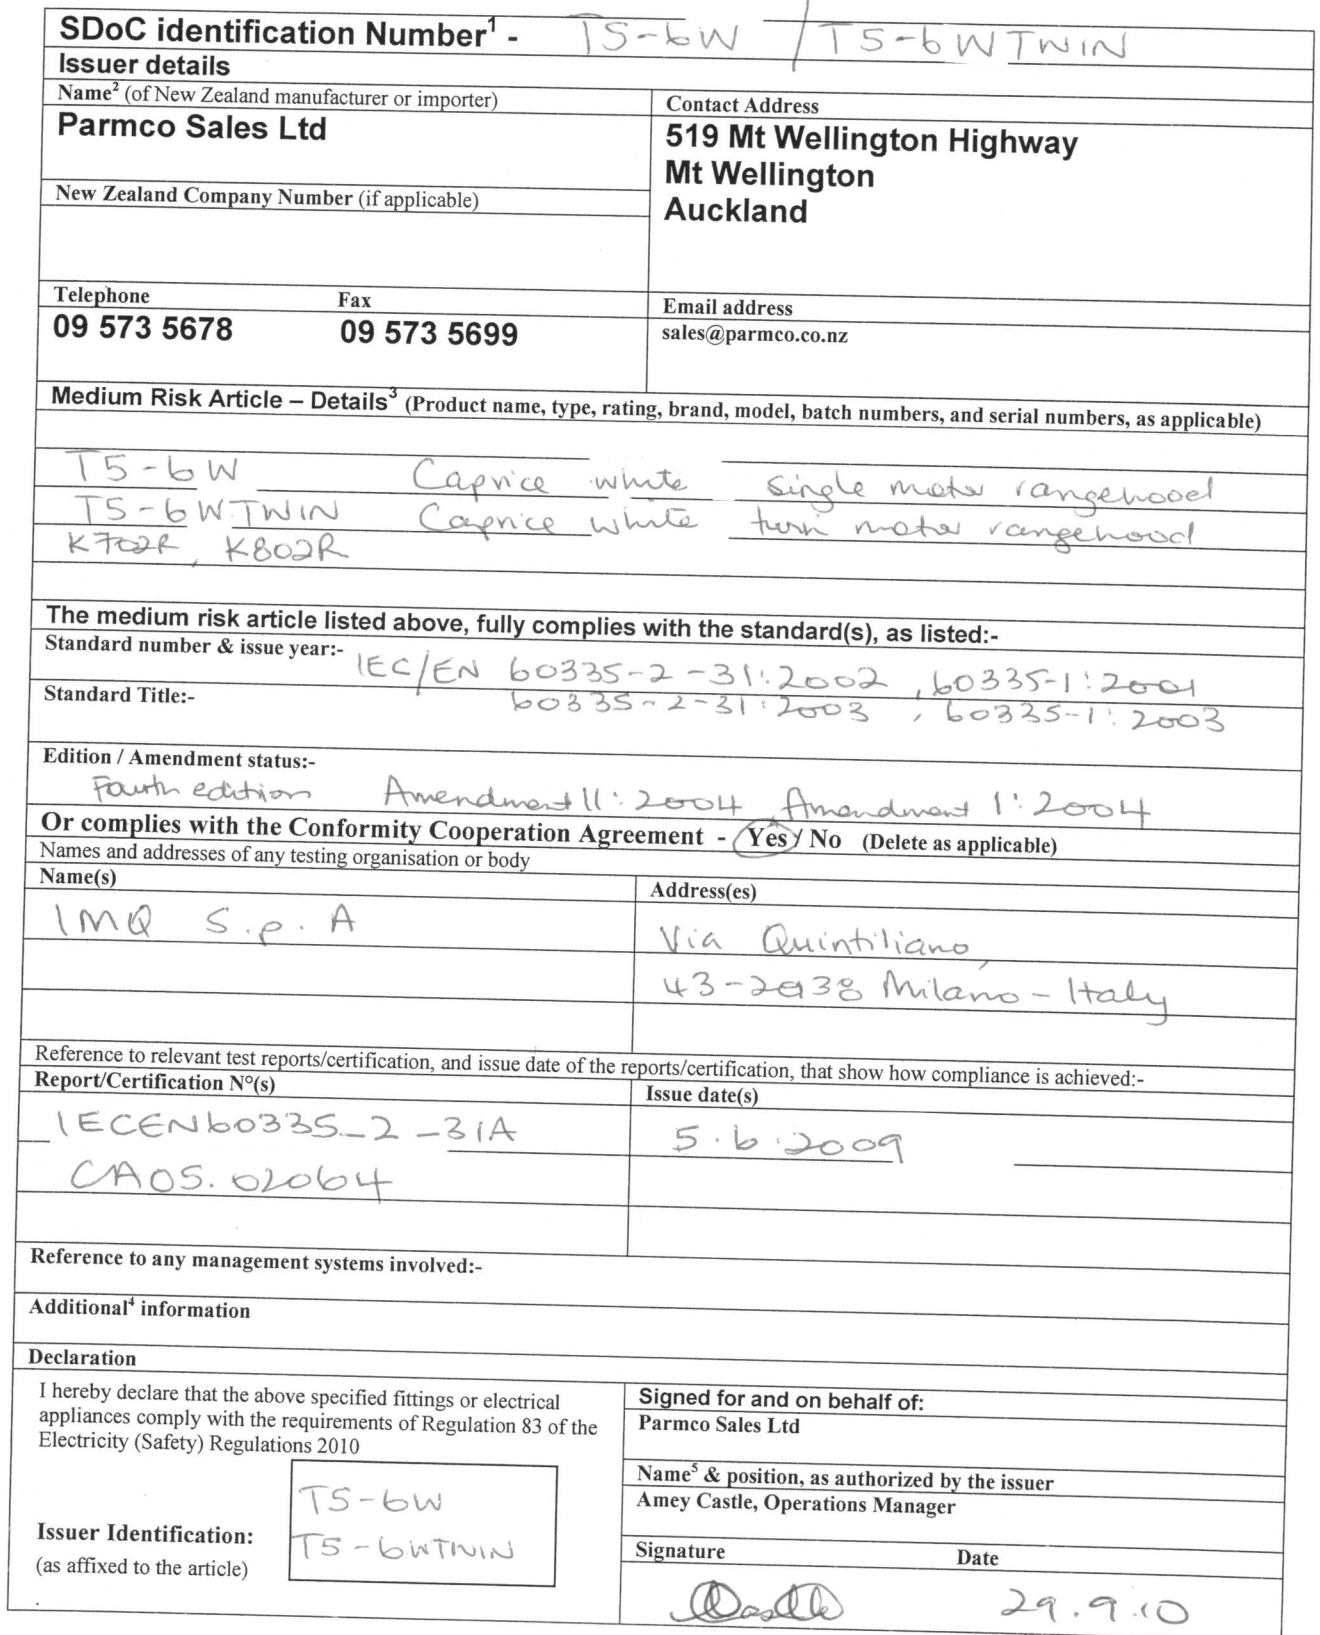 SDoC identification Number¹ - T5-6W / T5-6WTWIN
Issuer details
Name² (of New Zealand manufacturer or importer)
Parmco Sales Ltd
Contact Address
519 Mt Wellington Highway
Mt Wellington
Auckland
New Zealand Company Number (if applicable)
Telephone Fax
09 573 5678 09 573 5699
Email address
sales@parmco.co.nz
Medium Risk Article – Details³ (Product name, type, rating, brand, model, batch numbers, and serial numbers, as applicable)
T5-6W Caprice white single motor rangehood
T5-6WTWIN Caprice white twin motor rangehood
K702R, K802R
The medium risk article listed above, fully complies with the standard(s), as listed:-
Standard number & issue year:- IEC/EN 60335-2-31:2002, 60335-1:2001
Standard Title:- 60335-2-31:2003, 60335-1:2003
Edition / Amendment status:-
Fourth edition Amendment 11:2004 Amendment 1:2004
Or complies with the Conformity Cooperation Agreement - Yes / No (Delete as applicable)
Names and addresses of any testing organisation or body
Name(s)
IMQ S.p.A
Address(es)
Via Quintiliano,
43- Milano - Italy
Reference to relevant test reports/certification, and issue date of the reports/certification, that show how compliance is achieved:-
Report/Certification N°(s)
IECEN60335_2-31A
CA05.02064
Issue date(s)
5.6.2009
Reference to any management systems involved:-
Additional⁴ information
Declaration
I hereby declare that the above specified fittings or electrical
appliances comply with the requirements of Regulation 83 of the
Electricity (Safety) Regulations 2010
Issuer Identification:
(as affixed to the article)
T5-6W
T5-6WTWIN
Signed for and on behalf of:
Parmco Sales Ltd
Name⁵ & position, as authorized by the issuer
Amey Castle, Operations Manager
Signature Date
29.9.10